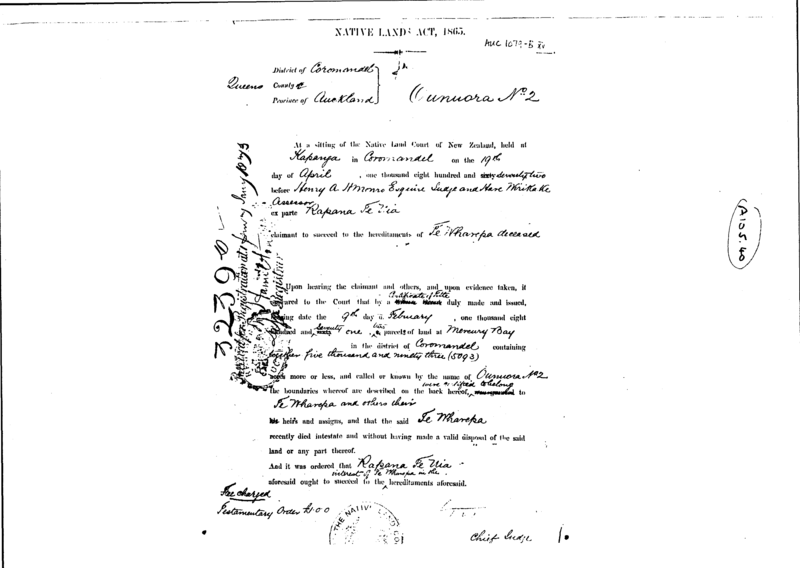 NATIVE LANDS ACT, 1865.
District of Coromandel
Queens County
Province of Auckland
Ounuora No 2
At a sitting of the Native Land Court of New Zealand, held at
Kapanga in Coromandel on the 19th
day of April , one thousand eight hundred and sixty seventy two
before Henry A H Monro Esquire Judge and Hare Wirikake
Assessor
ex parte Rapana Te Uia
claimant to succeed to the hereditaments of Te Wharepa deceased
Upon hearing the claimant and others, and upon evidence taken, it
appeared to the Court that by a Certificate of Title duly made and issued,
bearing date the 9th day of February , one thousand eight
hundred and seventy one parcels of land at Mercury Bay
in the district of Coromandel containing
together five thousand and ninety three (5093)
acres more or less, and called or known by the name of Ounuora No 2
the boundaries whereof are described on the back hereof, to belong to
Te Wharepa and others their
his heirs and assigns, and that the said Te Wharepa
recently died intestate and without having made a valid disposal of the said
land or any part thereof.
And it was ordered that Rapana Te Uia
aforesaid ought to succeed to the interest of Te Wharepa in the hereditaments aforesaid.
Fee charged
Testamentary Order £1 0 0
THE NATIVE LAND
Chief Judge
3239
A105.40